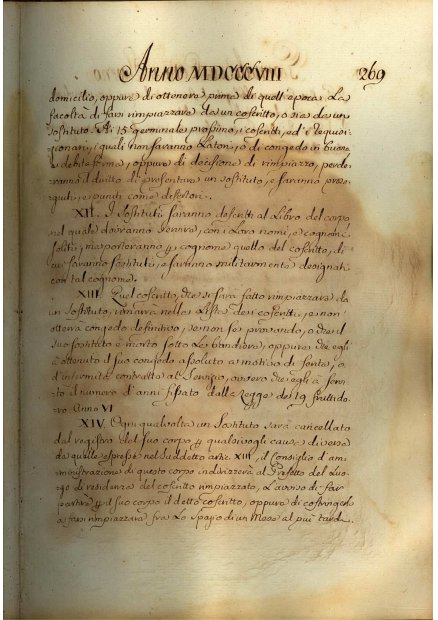 Anno MDCCCVIII 269
domicilio, oppure di ottenere prima di quell'epoca La
facoltà di farsi rimpiazzare da un coscritto, o sia da un
sostituto. Ai 15 germinale prossimo, i coscritti, ed i requisi-
zionari, i quali non saranno Latori, o di congedo in buona
e debita forma, oppure di decisione di rimpiazzo, perde-
ranno il diritto di presentare un sostituto, e saranno prose-
guiti, e puniti come desertori.
XII. I Sostituti saranno descritti al Libro del corpo
nel quale dovranno servire, con i Loro nomi, e cognomi
soliti; ma porteranno per cognome quello del coscritto, di
cui saranno sostituti, e saranno militarmente designati
con tal cognome.
XIII. Quel coscritto, che si sarà fatto rimpiazzare da
un sostituto, rimarrà nelle Liste dei coscritti, e non
otterrà congedo definitivo, se non se provando, o che il
suo sostituto è morto sotto Le bandiere, oppure che egli
à ottenuto il suo congedo assoluto a motivo di ferite, o
d'infermità contratte al Servizio, ovvero che egli à servi-
to il numero d'anni fissato dalla Legge dei 19 frutti do-
ro Anno VI
XIV. Ogni qualvolta un Sostituto sarà cancellato
dal registro del suo corpo per qualsivogli causa diversa
da quelle espresse nel suddetto artic. XIII, il Consiglio d'am-
ministrazione di questo corpo indirizzerà al Prefetto del Luo-
go di residenza del coscritto rimpiazzato, L'avviso di far
partire per il suo corpo il detto coscritto, oppure di costringerlo
a farsi rimpiazzare fra Lo spazio di un Mese al più tardi.